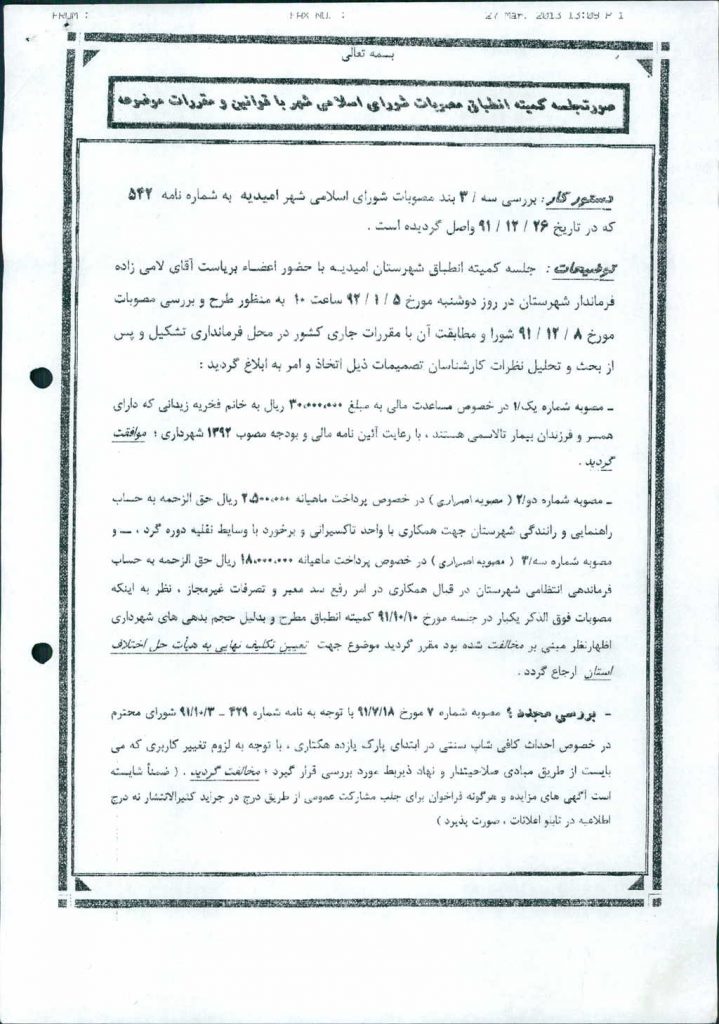 FROM : FAX NO. : 27 Mar. 2013 13:09 P 1
بسمه تعالی
صورتجلسه کمیته انطباق مصوبات شورای اسلامی شهر با قوانین و مقررات موضوعه
دستور کار : بررسی سه / ۳ بند مصوبات شورای اسلامی شهر امیدیه به شماره نامه ۵۴۲
که در تاریخ ۲۶ / ۱۲ / ۹۱ واصل گردیده است .
توضیحات : جلسه کمیته انطباق شهرستان امیدیه با حضور اعضاء بریاست آقای لامی زاده
فرماندار شهرستان در روز دوشنبه مورخ ۵ / ۱ / ۹۲ ساعت ۱۰ به منظور طرح و بررسی مصوبات
مورخ ۸ / ۱۲ / ۹۱ شورا و مطابقت آن با مقررات جاری کشور در محل فرمانداری تشکیل و پس
از بحث و تحلیل نظرات کارشناسان تصمیمات ذیل اتخاذ و امر به ابلاغ گردید :
ـ مصوبه شماره یک/۱ در خصوص مساعدت مالی به مبلغ ۳۰،۰۰۰،۰۰۰ ریال به خانم فخریه زیدانی که دارای
همسر و فرزندان بیمار تالاسمی هستند ، با رعایت آئین نامه مالی و بودجه مصوب ۱۳۹۲ شهرداری ؛ موافقت
گردید .
ـ مصوبه شماره دو/۲ ( مصوبه اصراری ) در خصوص پرداخت ماهیانه ۲،۵۰۰،۰۰۰ ریال حق الزحمه به حساب
راهنمایی و رانندگی شهرستان جهت همکاری با واحد تاکسیرانی و برخورد با وسایط نقلیه دوره گرد ، ـ و
مصوبه شماره سه/۳ ( مصوبه اصراری ) در خصوص پرداخت ماهیانه ۱۸،۰۰۰،۰۰۰ ریال حق الزحمه به حساب
فرماندهی انتظامی شهرستان در قبال همکاری در امر رفع سد معبر و تصرفات غیرمجاز ، نظر به اینکه
مصوبات فوق الذکر یکبار در جلسه مورخ ۹۱/۱۰/۱۰ کمیته انطباق مطرح و بدلیل حجم بدهی های شهرداری
اظهارنظر مبنی بر مخالفت شده بود مقرر گردید موضوع جهت تعیین تکلیف نهایی به هیأت حل اختلاف
استان ارجاع گردد .
ـ بررسی مجدد ؟ مصوبه شماره ۷ مورخ ۹۱/۷/۱۸ با توجه به نامه شماره ۴۲۹ ـ ۹۱/۱۰/۳ شورای محترم
در خصوص احداث کافی شاپ سنتی در ابتدای پارک یازده هکتاری ، با توجه به لزوم تغییر کاربری که می
بایست از طریق مبادی صلاحیتدار و نهاد ذیربط مورد بررسی قرار گیرد ؛ مخالفت گردید . ( ضمناً شایسته
است آگهی های مزایده و هرگونه فراخوان برای جلب مشارکت عمومی از طریق درج در جراید کثیرالانتشار نه درج
اطلاعیه در تابلو اعلانات ، صورت پذیرد )